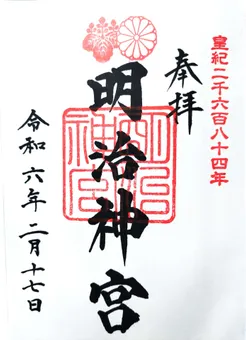 皇紀二千六百八十四年
奉拝
明治神宮
明治神宮
令和六年二月十七日